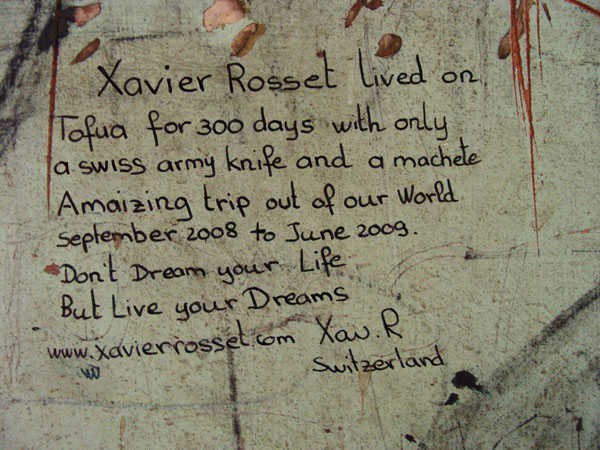 Xavier Rosset lived on
Tofua for 300 days with only
a swiss army knife and a machete
Amaizing trip out of our World
September 2008 to June 2009.
Don't Dream your Life
But Live your Dreams
www.xavierrosset.com Xav.R
Switzerland